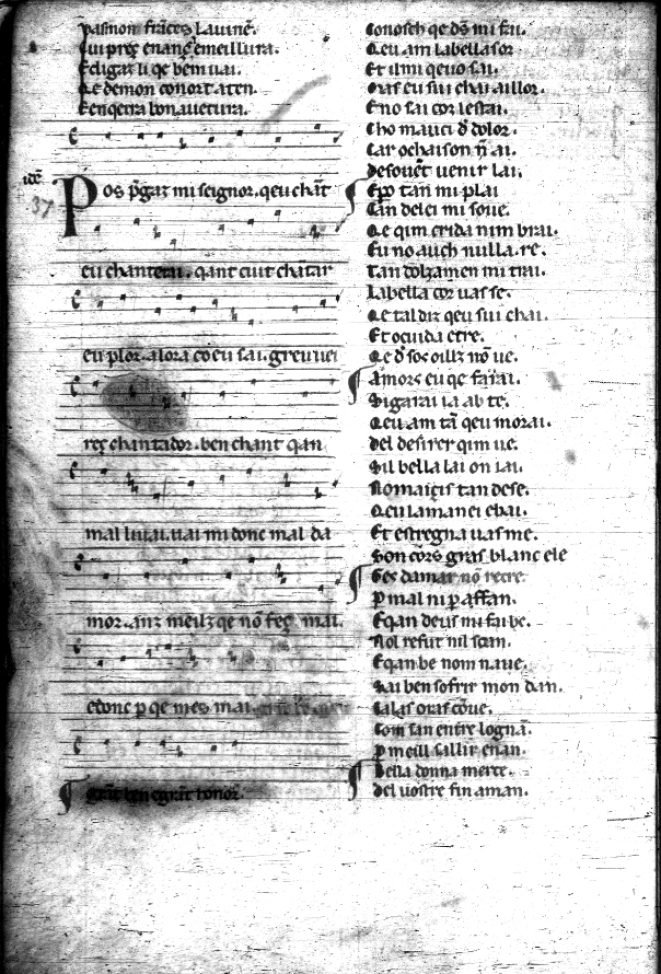 pasmon frāces Lauinē.
Qui preȝ enanȝ emeillura.
Ediga li qe bem uai.
Qe demon conort aten.
Eenqera bon auetura.
idē
37
Pos p̄gaȝ mi seignor. qeu chāt
eu chanterai. qant cuit chātar
eu plor. alora co eu sai. greu uei
reȝ chantador. ben chant qan
mal li uai. uai mi donc mal da
mor. anȝ meilȝ qe nō feȝ mai.
edonc p qe mes mai
grāt ben egrāt honor.
Conosch qe dē mi fai.
Qeu am labellasor
Et il mi qeuo sai.
Oras eu sui chai aillor.
Eno sai cor lestai.
Cho mauci d dolor.
Car ochaison n̄ ai.
desouēt uenir lai.
Epo tan mi plai
Can delei mi soue.
Qe qim crida nim brai.
Eu no auch nulla. re.
Tan dolȝamen mi trai.
Labella cor uas se.
Qe tal diȝ qeu sui chai.
Et ocuida etre.
Qe d sos oillȝ nō ue.
Amors eu qe farai.
Si garai ia ab te.
Qeu am tā qeu morai.
del desirer qim ue.
Sil bella lai on iai.
Nomaiȝis tan dese.
Qeu lamanei ebai.
Et estregna uas me.
Son cors gras blanc ele
Ges damar nō recre
P mal ni p affan.
Eqan deus mi fai be.
Nol refut nil soan.
Eqan be nom n aue.
Sai ben sofrir mon dan.
Calas oras cōue.
Com san entre lognā.
P meill sallir enan.
Bella donna merce.
del uostre fin aman.